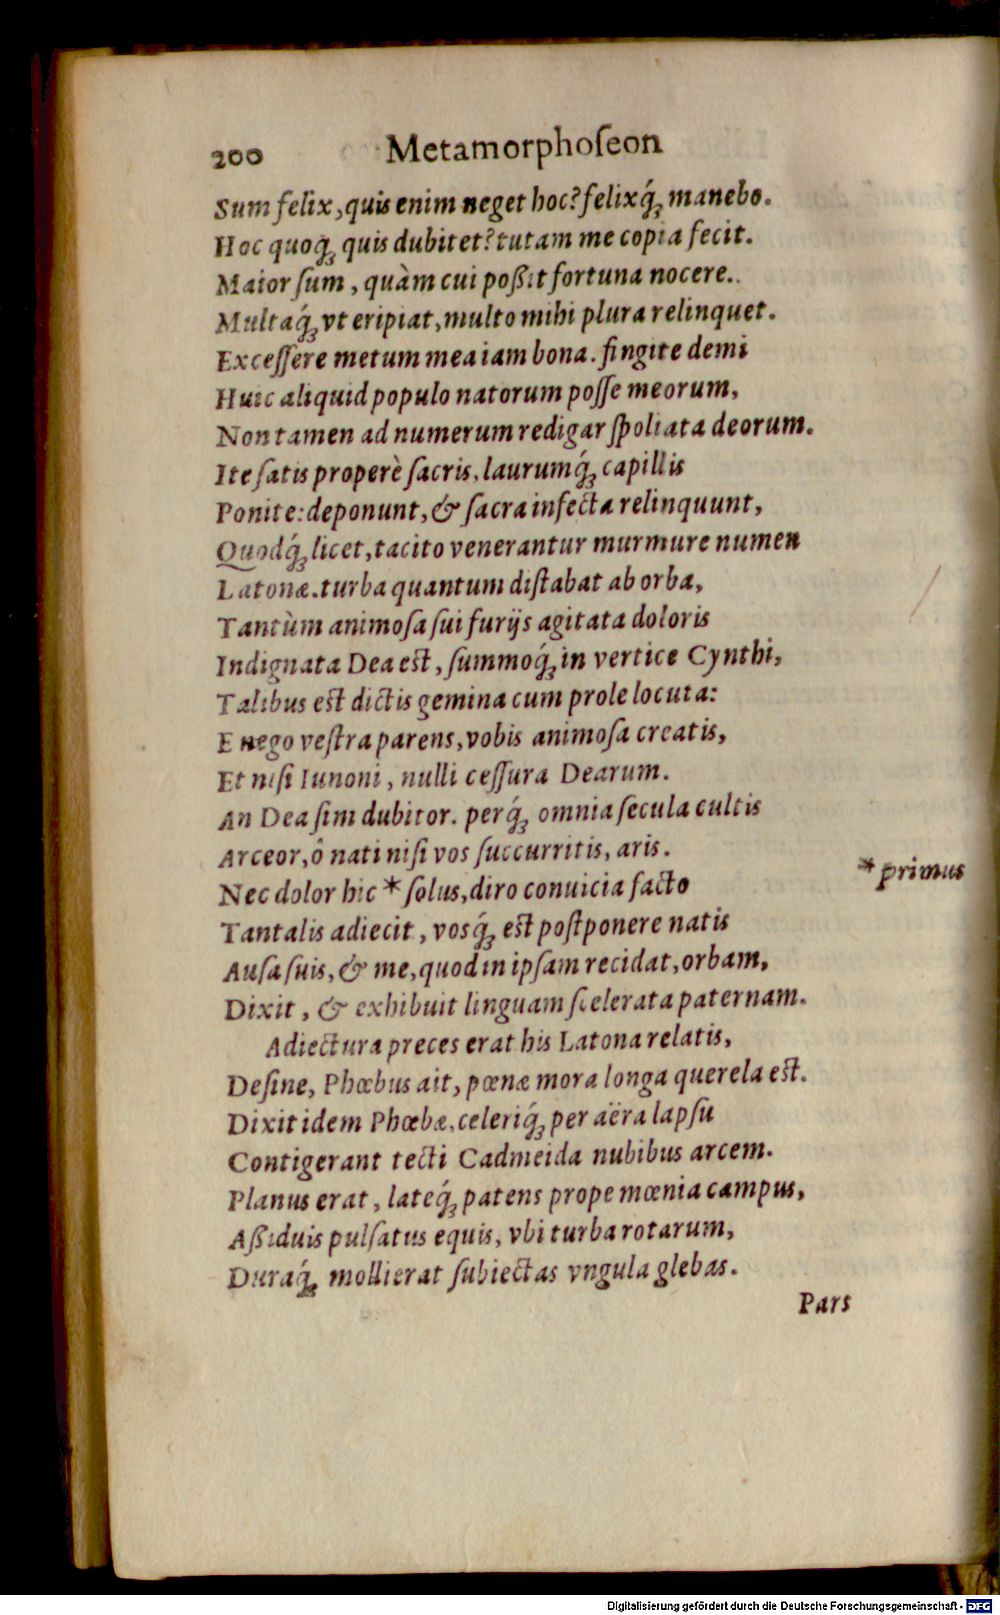 200 Metamorphoſeon
Sum felix, quis enim neget hoc? felixq́ꝫ manebo.
Hoc quoqꝫ quis dubitet? tutam me copia fecit.
Maior ſum, quàm cui poßit fortuna nocere.
Multaq́ꝫ vt eripiat, multo mihi plura relinquet.
Exceſſere metum mea iam bona. fingite demi
Huic aliquid populo natorum poſſe meorum,
Non tamen ad numerum redigar ſpoliata deorum.
Ite ſatis properè ſacris, laurumq́ꝫ capillis
Ponite: deponunt, & ſacra infecta relinquunt,
Quodq́ꝫ licet, tacito venerantur murmure numen
Latonæ. turba quantum diſtabat ab orba,
Tantùm animoſa ſui furijs agitata doloris
Indignata Dea eſt, ſummoq́ꝫ in vertice Cynthi,
Talibus eſt dictis gemina cum prole locuta:
E nego veſtra parens, vobis animoſa creatis,
Et niſi Iunoni, nulli ceſſura Dearum.
An Dea ſim dubitor. perq́ꝫ omnia ſecula cultis
Arceor, ô nati niſi vos ſuccurritis, aris.
Nec dolor hic * ſolus, diro conuicia facto
* primus
Tantalis adiecit, vosq́ꝫ eſt poſtponere natis
Auſa ſuis, & me, quod in ipſam recidat, orbam,
Dixit, & exhibuit linguam ſcelerata paternam.
Adiectura preces erat his Latona relatis,
Deſine, Phœbus ait, pœnæ mora longa querela eſt.
Dixit idem Phœbæ, celeriq́ꝫ per aëra lapſu
Contigerant tecti Cadmeida nubibus arcem.
Planus erat, lateq́ꝫ patens prope mœnia campus,
Aßiduis pulſatus equis, vbi turba rotarum,
Duraq́ꝫ mollierat ſubiectas vngula glebas.
Pars
Digitalisierung gefördert durch die Deutsche Forschungsgemeinschaft - DFG